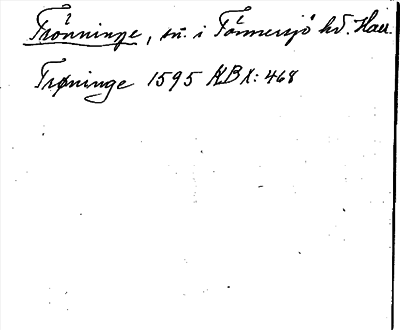 Trönninge, sn. i Tönnersjö hd. Hall.
Trøninge 1595 ÆBX: 468